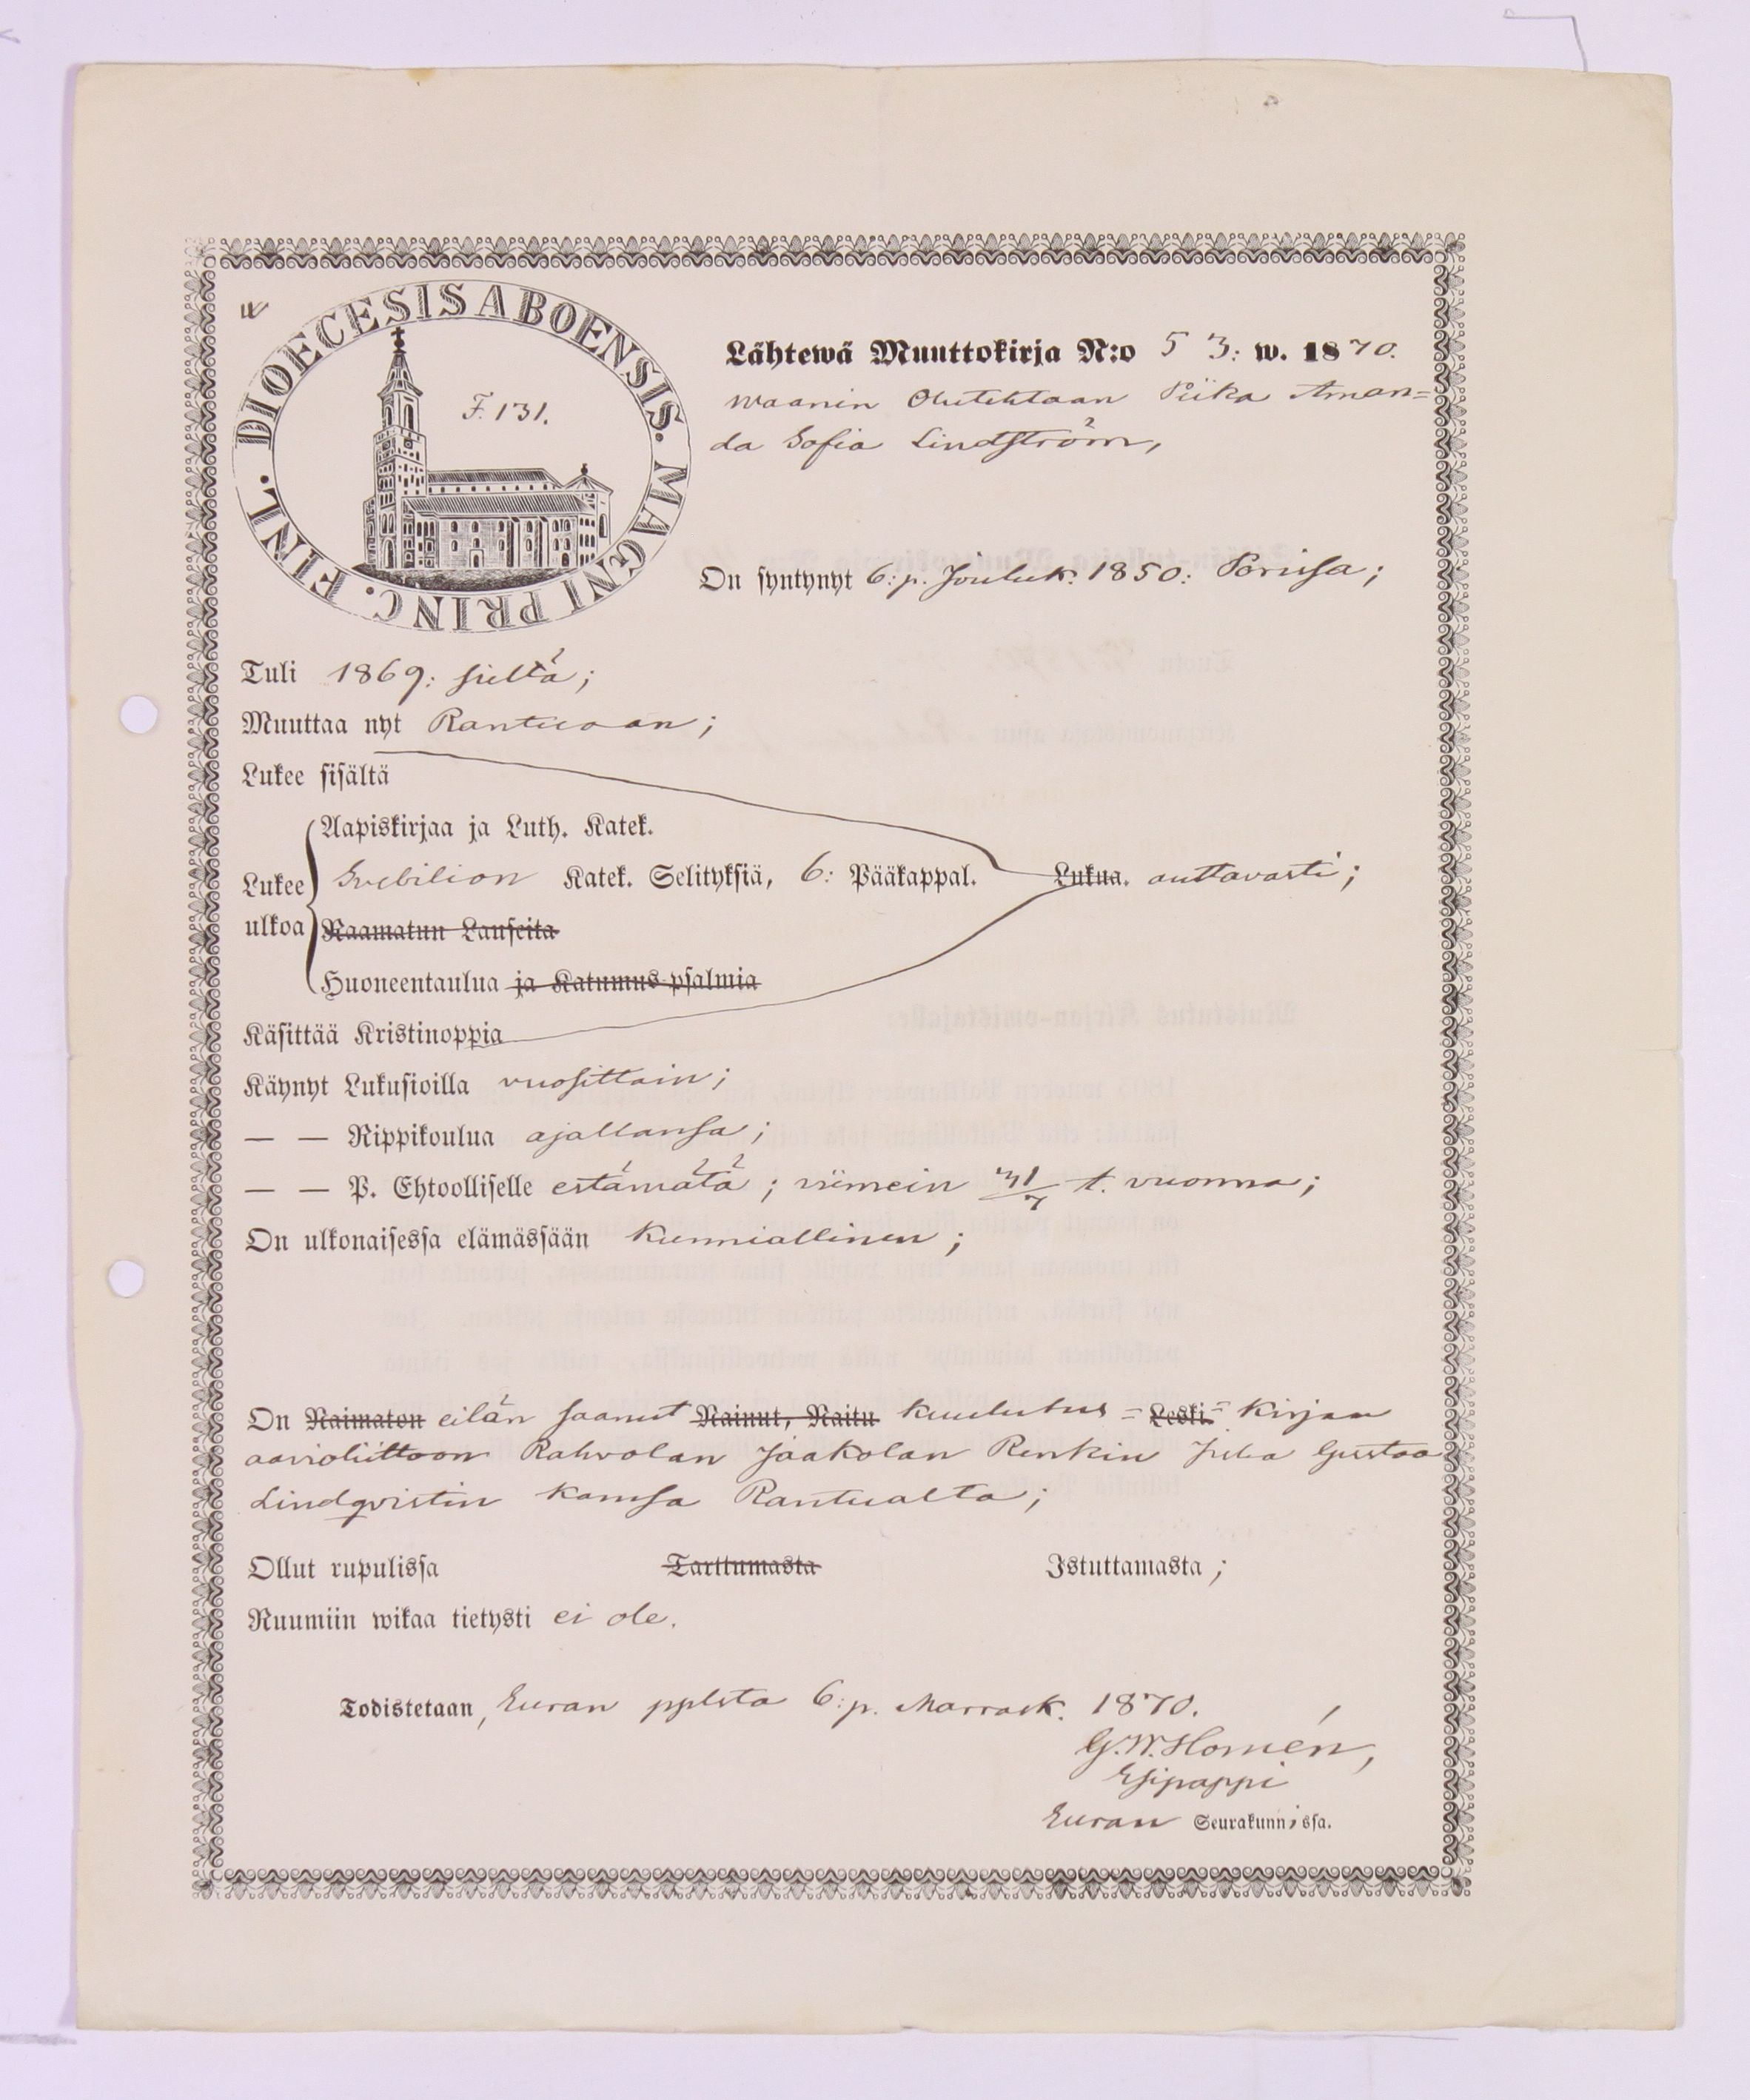 DIOECESIS ABOENSIS. MAGNI PRINC. FINL.
F. 131.
Lähtewä Muuttokirja N:o 53: w. 1870.
Waanin Olutehtaan Piika Aman=
da Sofia Lindström,
On syntynyt 6:p. Jouluk. 1850: Porissa;
Tuli 1869: sieltä;
Muuttaa nyt
Lukee sisältä
Aapiskirjaa ja Luth. Katek.
Lukee ulkoa Svebilion Katek. Selityksiä, 6: Pääkappal. Lukua. auttavasti;
Raamatun Lauseita
Huoneentaulua ja Katumus-psalmia
Käsittää Kristinoppia
Käynyt Lukusioilla vuosittain;
— — Rippikoulua ajallansa;
— — P. Ehtoolliselle estämätä; viimein 31/7 t. vuonna;
On ulkonaisessa elämässään kunniallinen;
On Naimaton eilän saanut Nainut, Naitu kuulutus= Leski= kirjan
aavioliittoon Rahvolan Jaakolan Renkin Juha Gustaa
Lindqvistin kanssa
Ollut rupulissa Tarttumasta Istuttamasta;
Ruumiin wikaa tietysti ei ole.
Todistetaan, Euran pplsta 6:p. Marrask. 1870.
G. W. Homén,
Esipappi
Euran Seurakunnissa.